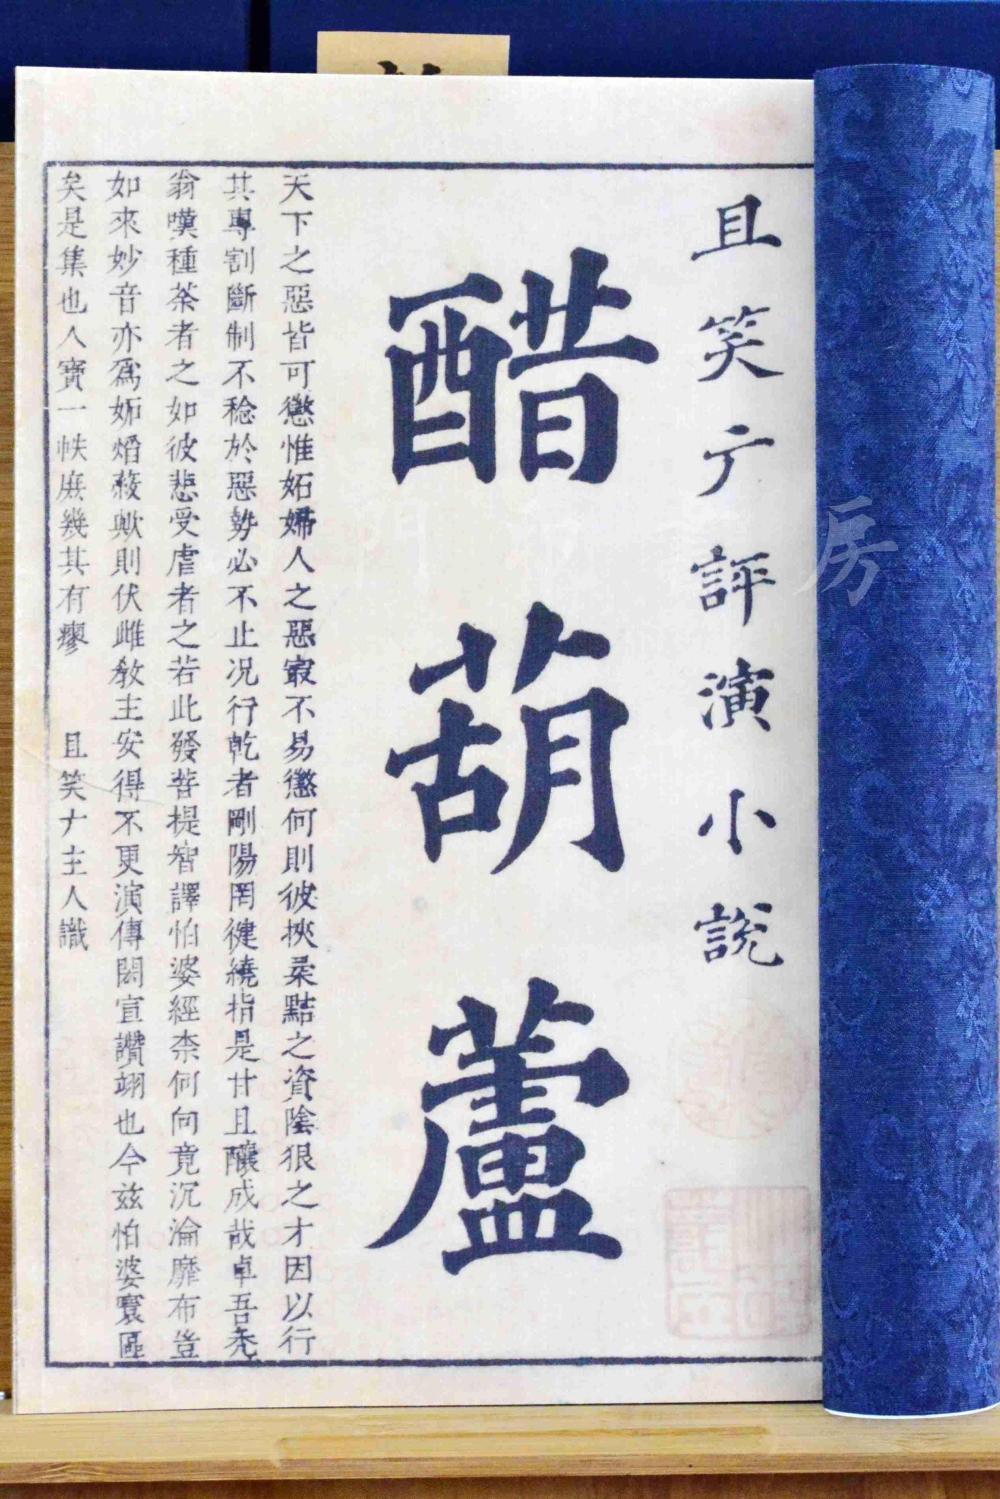 且笑广評演小說
醋葫蘆
天下之惡皆可懲惟妬婦人之惡寂不易懲何則彼挾柔黠之資陰狠之才因以行
其專割斷制不稔於惡勢必不止况行乾者剛陽罔健繞指是甘且釀成哉卓吾禿
翁嘆種荼者之如彼悲受虐者之若此發菩提智譯怕婆經柰何向竟沉淪靡布豈
如來妙音亦爲妬㛐蔽歟則伏雌教主安得不更演傳閎宣讚翊也今茲怕婆寰區
矣是集也人寶一帙庶幾其有瘳 且笑广主人識
房